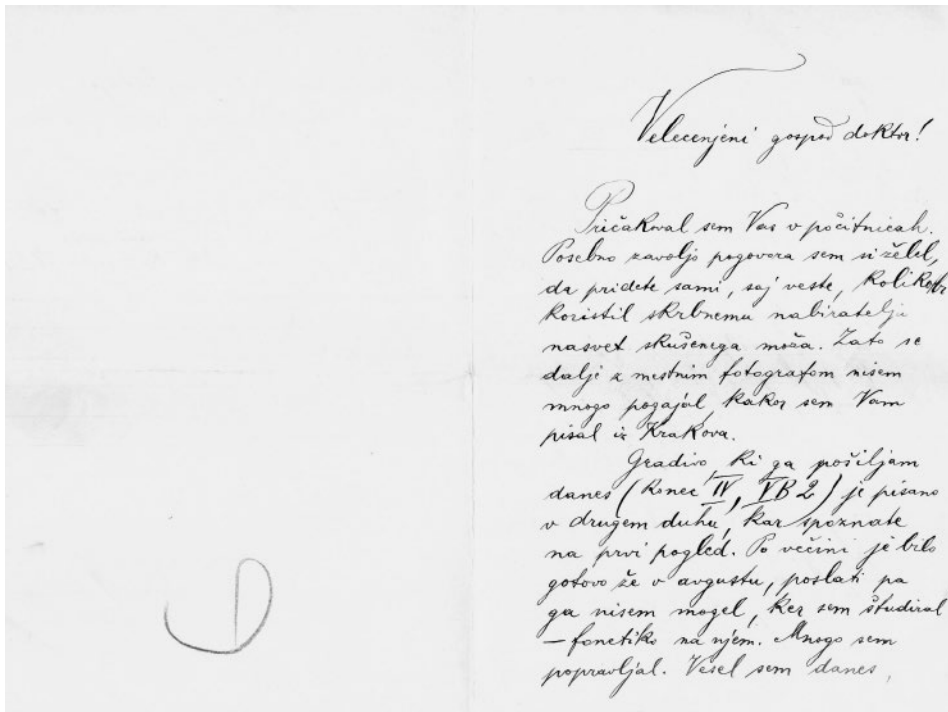 Velecenjeni gospod doktor!
Pričakoval sem Vas v počitnicah.
Posebno zavoljo pogovora sem si želel,
da pridete sami, saj veste, koliko bi
koristil skrbnemu nabiratelju
nasvet skušenega moža. Zato se
dalje z mestnim fotografom nisem
mnogo pogajal, kakor sem Vam
pisal iz Krakova.
Gradivo, ki ga pošiljam
danes (konec IV, VB 2) je pisano
v drugem duhu, kar spoznate
na prvi pogled. Po večini je bilo
gotovo že v avgustu, poslati pa
ga nisem mogel, ker sem študiral
— fonetiko na njem. Mnogo sem
popravljal. Vesel sem danes,